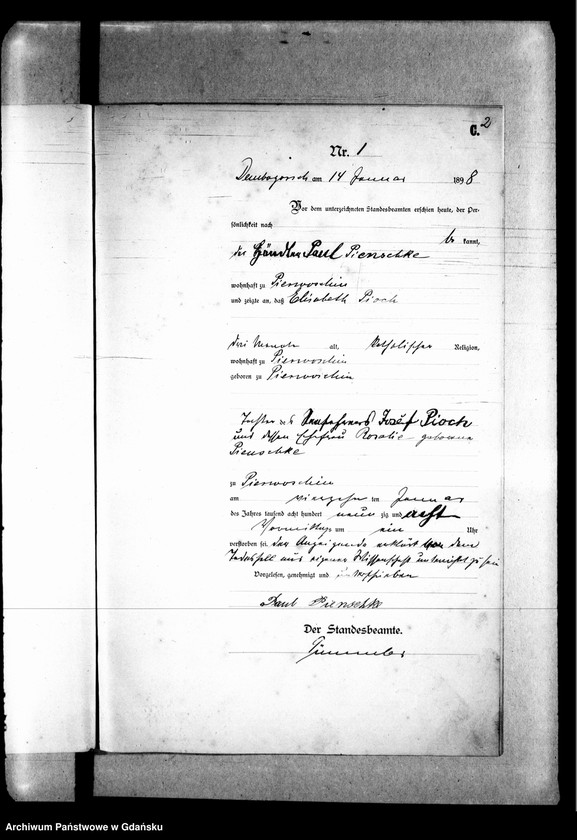 C. 2
Nr. 1
Dembogorsch am 14 Januar 1898
Vor dem unterzeichneten Standesbeamten erschien heute, der Per-
sönlichkeit nach
be kannt,
der Händler Paul Pienschke
wohnhaft zu Pierwoschin
und zeigte an, daß Elisabeth Pioch
drei Monate alt, katholischer Religion,
wohnhaft zu Pierwoschin
geboren zu Pierwoschin
Tochter des Josef Pioch
und dessen Ehefrau Rosalie geborene
Pienschke
zu Pierwoschin
am vierzehn ten Januar
des Jahres tausend acht hundert neun zig und acht
Vormittags um ein Uhr
verstorben sei. Der Anzeigende erklärt von dem
Todesfall aus eigener Wissenschaft unterrichtet zu sein
Vorgelesen, genehmigt und unterschrieben
Paul Pienschke
Der Standesbeamte.
Archiwum Państwowe w Gdańsku